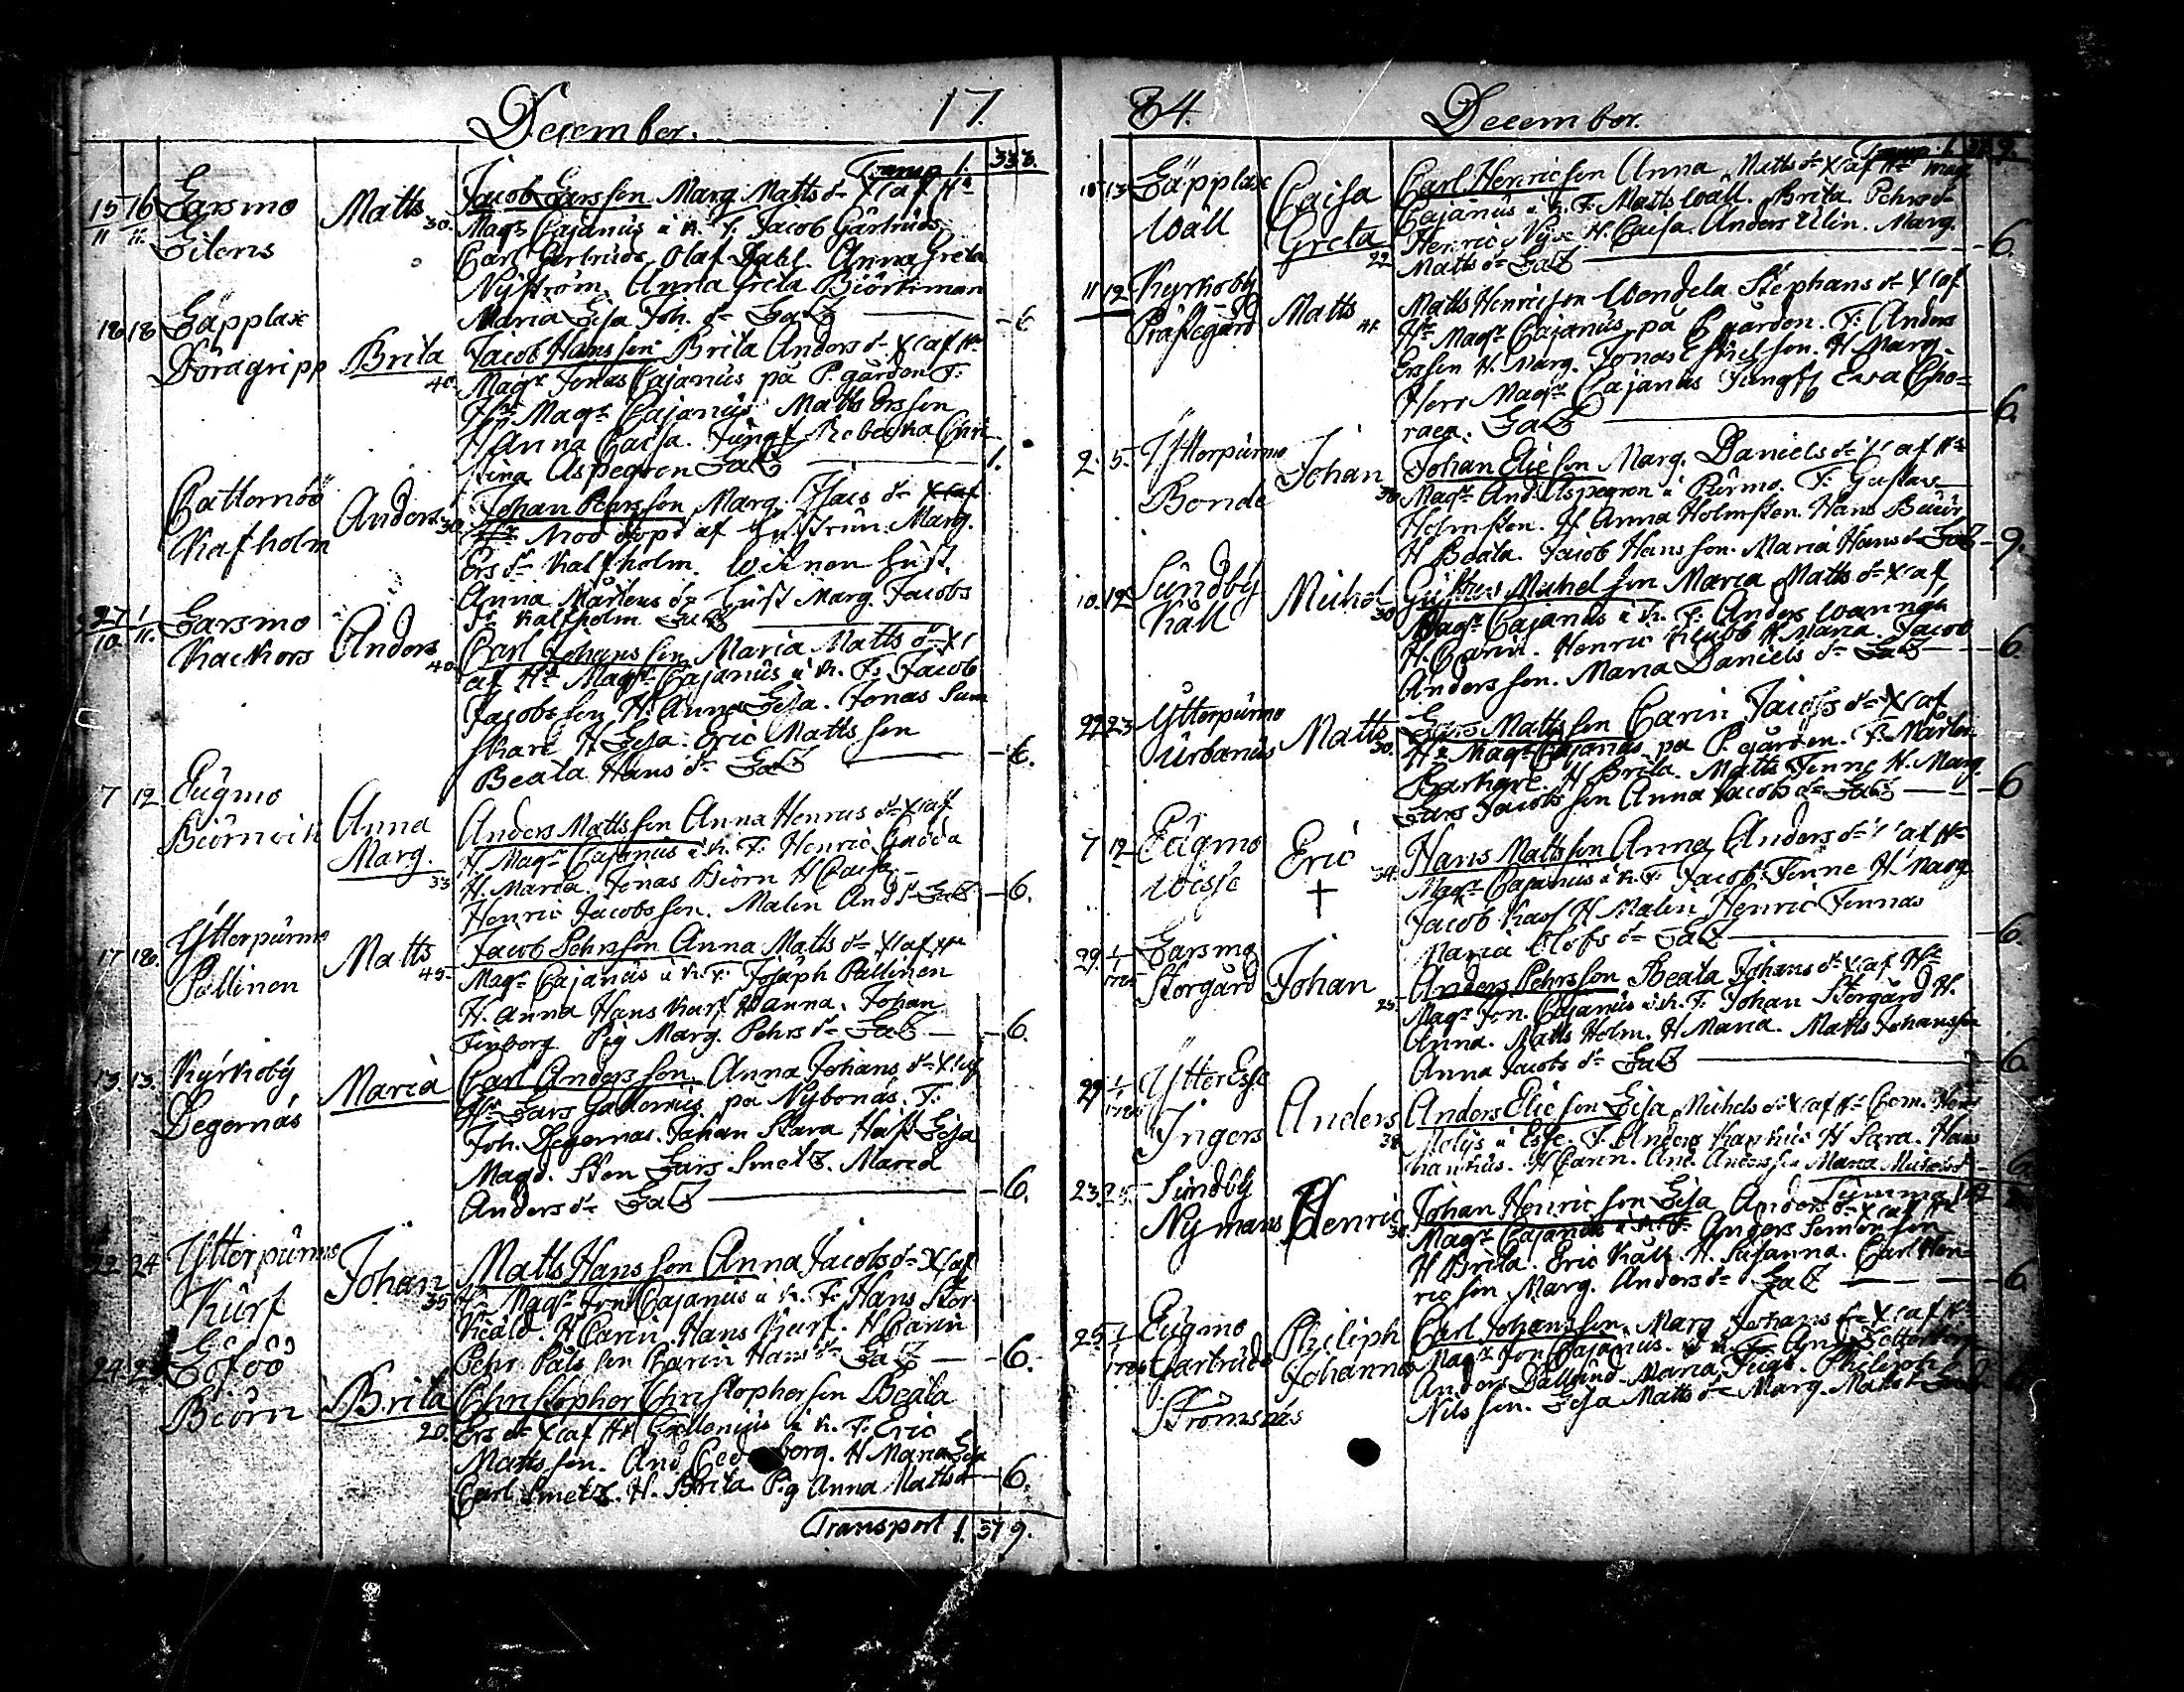 December. 17.
Transp 1. 33 3.
15/11 16/11 Larsmo Matts 30. Jacob Larsson Marg. Matts dr Xl af Hr
Eilens Magr Cajanus i K. F. Jacob Gärtruds
Carl Gertruds. Olaf Dahl. Anna Greta
Nyström. Anna Greta Björkman
Maria Lisa Joh. dr Lalz — 6
18 18 Läpplax Brita 40. Jacob Hansson Brita Anders dr Xl af Hr
Döragripp Magr Jonas Cajanus på P. gården F.
Hr Magr Cajanus Matts Ersson
H Anna Caisa. Jungf Rebecka Chri
stina Aspegren Lalz — 1.
Catternöö Anders 30. Johan Pehrsson Marg. Isacs dr Xl af
Kafholm Nöd döpt af Hustrun Marg.
Ers dr Kalfholm. Witnen hust.
Anna Mårtens dr hust Marg. Jacobs
dr Kalfholm Lalz
27/10 1/11 Larsmo Anders 40. Carl Johansson Maria Matts dr Xl
Kackors af Hr Magr Cajanus i K. F. Jacob
Jacobsson H. Anna Lisa. Jonas Sam
skare H Lisa. Eric Mattsson
Beata Hans dr Lalz — 6.
7 12 Eugmo Anna Marg. 33 Anders Mattsson Anna Henrics dr Xl af
Biörnvik H Magr Cajanus i K. F. Henric Gädda
H. Maria. Jonas Biörn H Caisa
Henric Jacobsson. Malin And dr Lalz — 6.
17 18. Ytterpurmo Matts 45. Jacob Pehrsson Anna Matts dr Xl af Hr
Pellinen Magr Cajanus i K. F. Joseph Pellinen
H. Anna Hans Kurf H anna. Johan
Finborg Pig Marg. Pehrs dr Lalz — 6.
13. 13. Kyrkoby Maria Carl Andersson Anna Johans dr Xl af
Degernäs Hr Lars Gallenius på Nybonäs. F.
Joh. Degernäs. Johan Skata Hust Lisa
Magd. Sten Lars Smetz. Maria
Anders dr Lalz — 6.
22 24 Ytterpurmo Johan 35 Matts Hansson Anna Jacobs dr Xl af
Kurf Hr Magr Jon Cajanus i K. F. Hans Stor-
Kåald. H Carin. Hans Kurf. H Carin
Pehr Pålsson Carin Hans dr Lalz — 6.
24 25 Löföö Brita 20. Christopher Christophersson Beata
Biörn Ers dr Xl af Hr Gallenius i K. F. Eric
Mattsson. And Ced borg. H Maria Lisa
Carl Smetz. H. Brita. Pig Anna Matts dr — 6.
Transport 1. 37 9.
84. December.
Transp. 1. 37 9.
10 13 Läpplax Caisa Greta 22 Carl Henricsson Anna Matts dr Xl af Hr Mag
Wall Cajanus i K. F. Matts Wall. Brita Pehrs dr
Henric Nyqv H. Caisa. Anders Ulin. Marg.
Matts dr Lalz — 6.
11 12 Kyrkoby Matts 41. Matts Henricsson Wendela Stephans dr Xl af
Präftegård Hr Magr Cajanus på P gården. F. Anders
Ersson H. Marg. Jonas Michelsson. H Marg.
Herr Magr Cajanus Jungfr Eva Cho-
raea. Lalz — 6.
2. 5. Ytterpurmo Johan 30 Johan Eliesson Marg. Daniels dr Xl af Hr
Bonde Magr And. Aspegren i Purmo. F. Gustav
Holmsten. H Anna Holmsten. Hans Buur
H Beata. Jacob Hansson. Maria Hans dr Lalz — 9.
10. 12 Sundby Michel 30 Gustav Michelsson Maria Matts dr Xl af
Käll Magr Cajanus i K. F. Anders Wännga
H. Carin. Henric Klubb H Maria. Jacob
Andersson. Maria Daniels dr Lalz — 6.
22 23 Ytterpurmo Matts 30. Lars Mattsson Carin Jacobs dr Xl af
Urbanus Hr Magr Cajanus på P. gården. F. Mårten
Barkare. H Brita. Matts Finne H. Marg.
Lars Jacobsson Anna Jacobs dr Lalz — 6
7 12 Eugmo Eric † 34. Hans Mattsson Anna Anders dr Xl af Hr
Wesse Magr Cajanus i K. F. Jacob Finne H Marg
Jacob Kass H Malin Henric Finnäs
Maria Elofs dr Lalz — 6.
29. 1/1 1785 Larsmo Johan 25. Anders Pehrsson Beata Johans dr Xl af Hr
Storgård Magr Jon. Cajanus i K. F. Johan Storgård H.
Anna. Matts Holm. H Maria. Matts Johansson
Anna Jacobs dr Lalz — 6.
29 1/1 1785 Ytter Esse Anders 38 Anders Eliesson Lisa Michels dr Xl af Hr Com.
Ingers i Esse. F. Anders Kapkus H Sara. Hans
H Carin. And. Andersson Maria Michels dr — 6.
Summa
23. 25. Sundby Henric 30. Johan Henricsson Lisa Anders dr Xl af Hr
Nymans Magr Cajanus i K. F. Anders Simonsson
H Brita. Eric Käll. H. Susanna. Carl Hen-
ricsson Marg. Anders dr Lalz — 6
25. 1/1 1785 Eugmo Philiph Johannes Carl Johansson Marg Johans dr Xl af Hr
Gertruds Magr Jon Cajanus. i K. F. And. Zetterberg
Strömsnäs Anders Dallund Maria Fugt. Philiph
Nilsson. Lisa Matts dr Marg. Matts dr Lalz